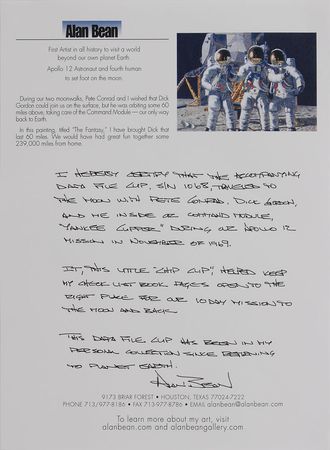 Alan Bean
First Artist in all history to visit a world
beyond our own planet Earth.
Apollo 12 Astronaut and fourth human
to set foot on the moon.
During our two moonwalks, Pete Conrad and I wished that Dick
Gordon could join us on the surface, but he was orbiting some 60
miles above, taking care of the Command Module — our only way
back to Earth.
In this painting, titled "The Fantasy," I have brought Dick that
last 60 miles. We would have had great fun together some
239,000 miles from home.
I HEREBY CERTIFY THAT THE ACCOMPANYING
DATA FILE CLIP, S/N 1068, TRAVELED TO
THE MOON WITH PETE CONRAD, DICK GORDON,
AND ME INSIDE OUR COMMAND MODULE,
"YANKEE CLIPPER" DURING OUR APOLLO 12
MISSION IN NOVEMBER OF 1969.
IT, THIS LITTLE "CHIP CLIP", HELPED KEEP
MY CHECK LIST BOOK PAGES OPEN TO THE
RIGHT PLACE FOR OUR 10 DAY MISSION TO
THE MOON AND BACK.
THIS DATA FILE CLIP HAS BEEN IN MY
PERSONAL COLLECTION SINCE RETURNING
TO PLANET EARTH.
ALAN BEAN
9173 BRIAR FOREST • HOUSTON, TEXAS 77024-7222
PHONE 713/977-8186 • FAX 713-977-8786 • EMAIL alanbean@alanbean.com
To learn more about my art, visit
alanbean.com and alanbeangallery.com